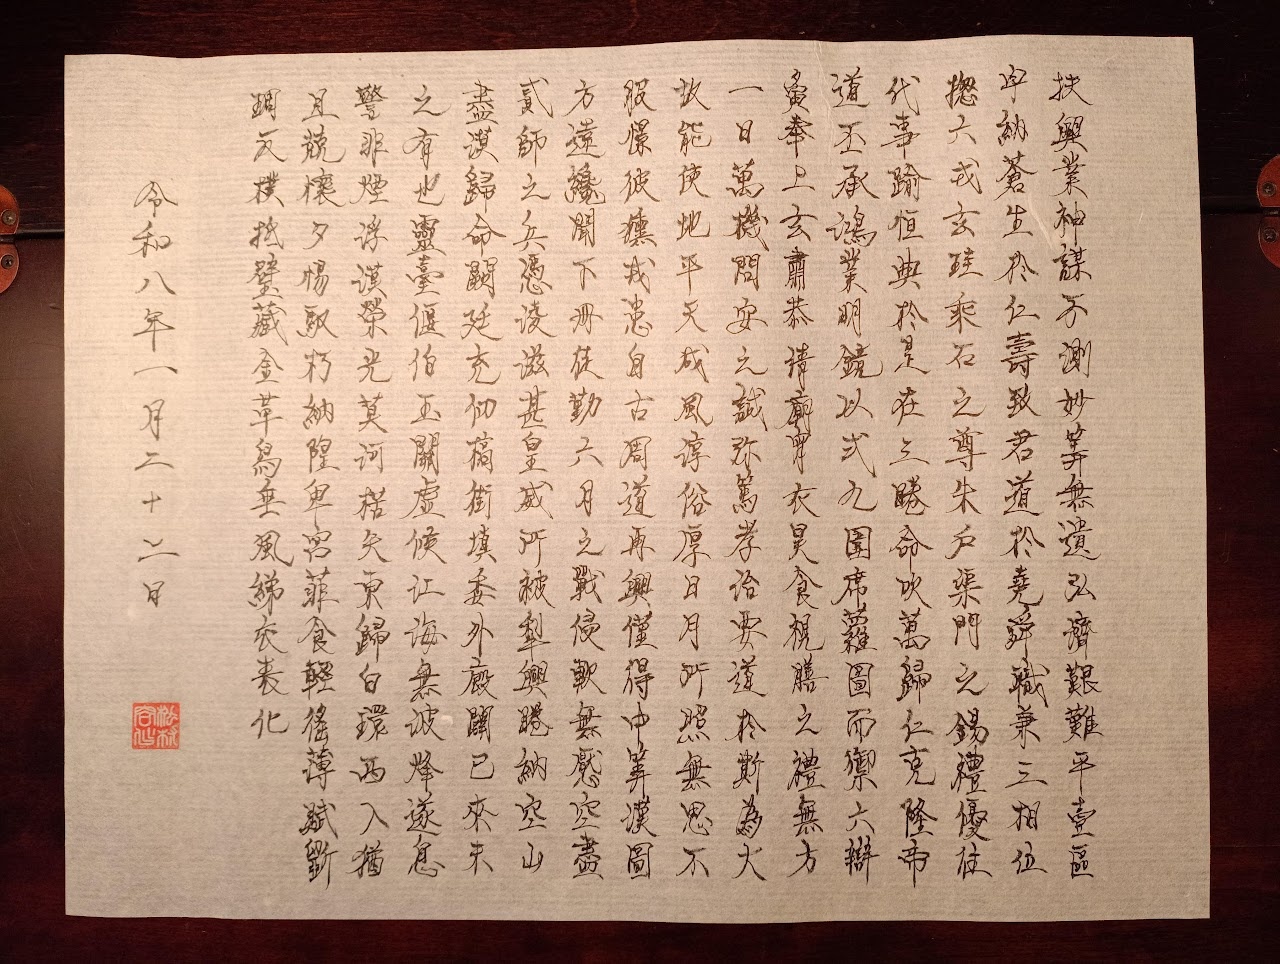 扶興業神謀不測妙筭無遺弘濟艱難平壹區
宇納蒼生於仁壽致君道於堯舜職兼三相位
摠六戎玄珪乘石之尊朱戶渠門之錫禮優往
代事踰恒典於是在三睠命吹萬歸仁克隆帝
道丕承鴻業明鏡以式九圍席蘿圖而禦六辯
夤奉上玄肅恭清廟宵衣昃食視膳之禮無方
一日萬機問安之誠弥篤孝治要道於斯為大
故能使地平天成風淳俗厚日月所照無思不
服憬彼獯戎患自古周道再興僅得中筭漢圖
方遠纔聞下冊徒勤六月之戰侵軼無厭空盡
貳師之兵憑淩滋甚皇威所被犁興睠納空山
盡漠歸命闕廷充仞槁街填委外廄闢已來未
之有也靈臺偃伯玉關虛候江海無波烽燧息
警非煙浮漢榮光莫河楛矢東歸白環西入猶
且兢懷夕惕馭朽納隍卑宮菲食輕徭薄賦斲
琱反樸抵璧藏金革舄垂風綈衣表化
令和八年一月二十七日